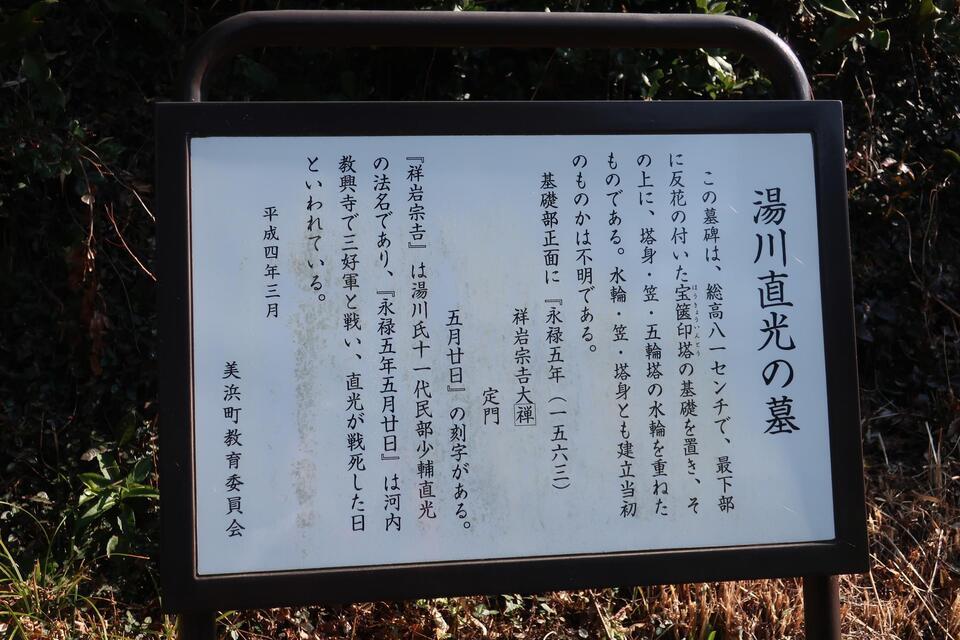 湯川直光の墓
この墓碑は、総高八一センチで、最下部
に反花の付いた宝篋印塔の基礎を置き、そ
ほうきょういんとう
の上に、塔身・笠・五輪塔の水輪を重ねた
ものである。水輪・笠・塔身とも建立当初
のものかは不明である。
基礎部正面に『永禄五年（一五六二）
祥岩宗吉大禅
定門
五月廿日』の刻字がある。
『祥岩宗吉』は湯川氏十一代民部少輔直光
の法名であり、『永禄五年五月廿日』は河内
教興寺で三好軍と戦い、直光が戦死した日
といわれている。
平成四年三月
美浜町教育委員会